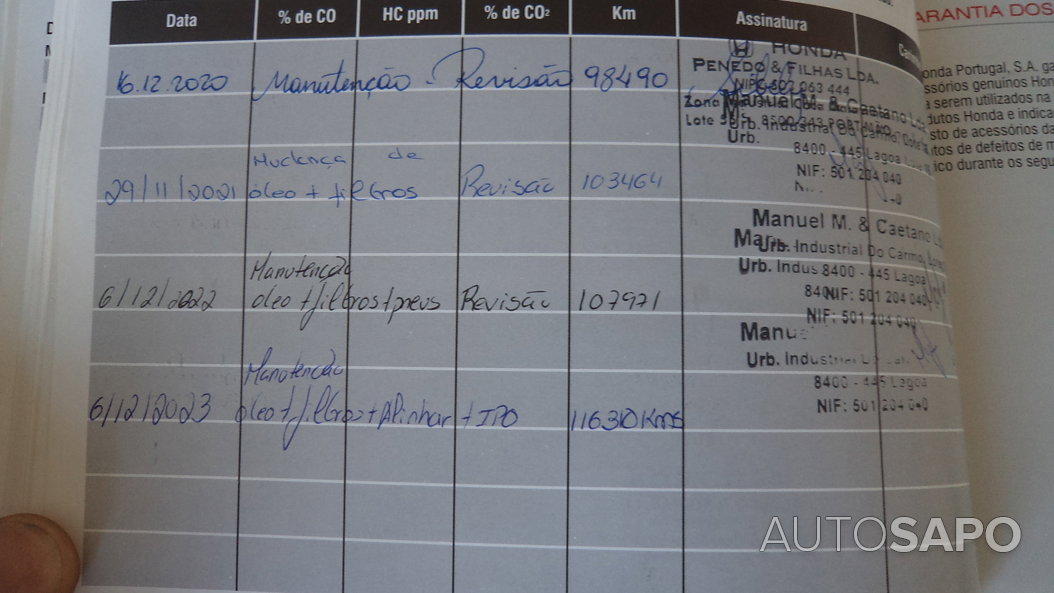 Data % de CO HC ppm % de CO2 Km Assinatura
16.12.2020 Manutenção - Revisão 98490
HONDA
PENEDO & FILHAS LDA.
Zona
Lote
Manuel M. & Caetano
Urb. Industrial Do Carmo,
Urb.
8400 - 445 Lagoa
NIF: 501 204 040
Mudença de
29/11/2021 óleo + filtros Revisão 103464
Manuel M. & Caetano
Urb. Industrial Do Carmo,
Urb. Indus 8400 - 445 Lagoa
NIF: 501 204 040
NIF: 501 204 040
Manutenção
6/12/2022 oleo+filtros+pneus Revisão 107971
Manu
Urb. Industrial
8400 - 445 Lagoa
NIF: 501 204 040
Manutenção
6/12/2023 óleo+filtros+Alinhar + IPO 116310Kms
ARANTIA DOS
onda Portugal, S.A. ga
ssórios genuínos Hon
a serem utilizados na
dutos Honda e indica
sto de acessórios da
tos de defeitos de m
ico durante os segu
AUTOSAPO